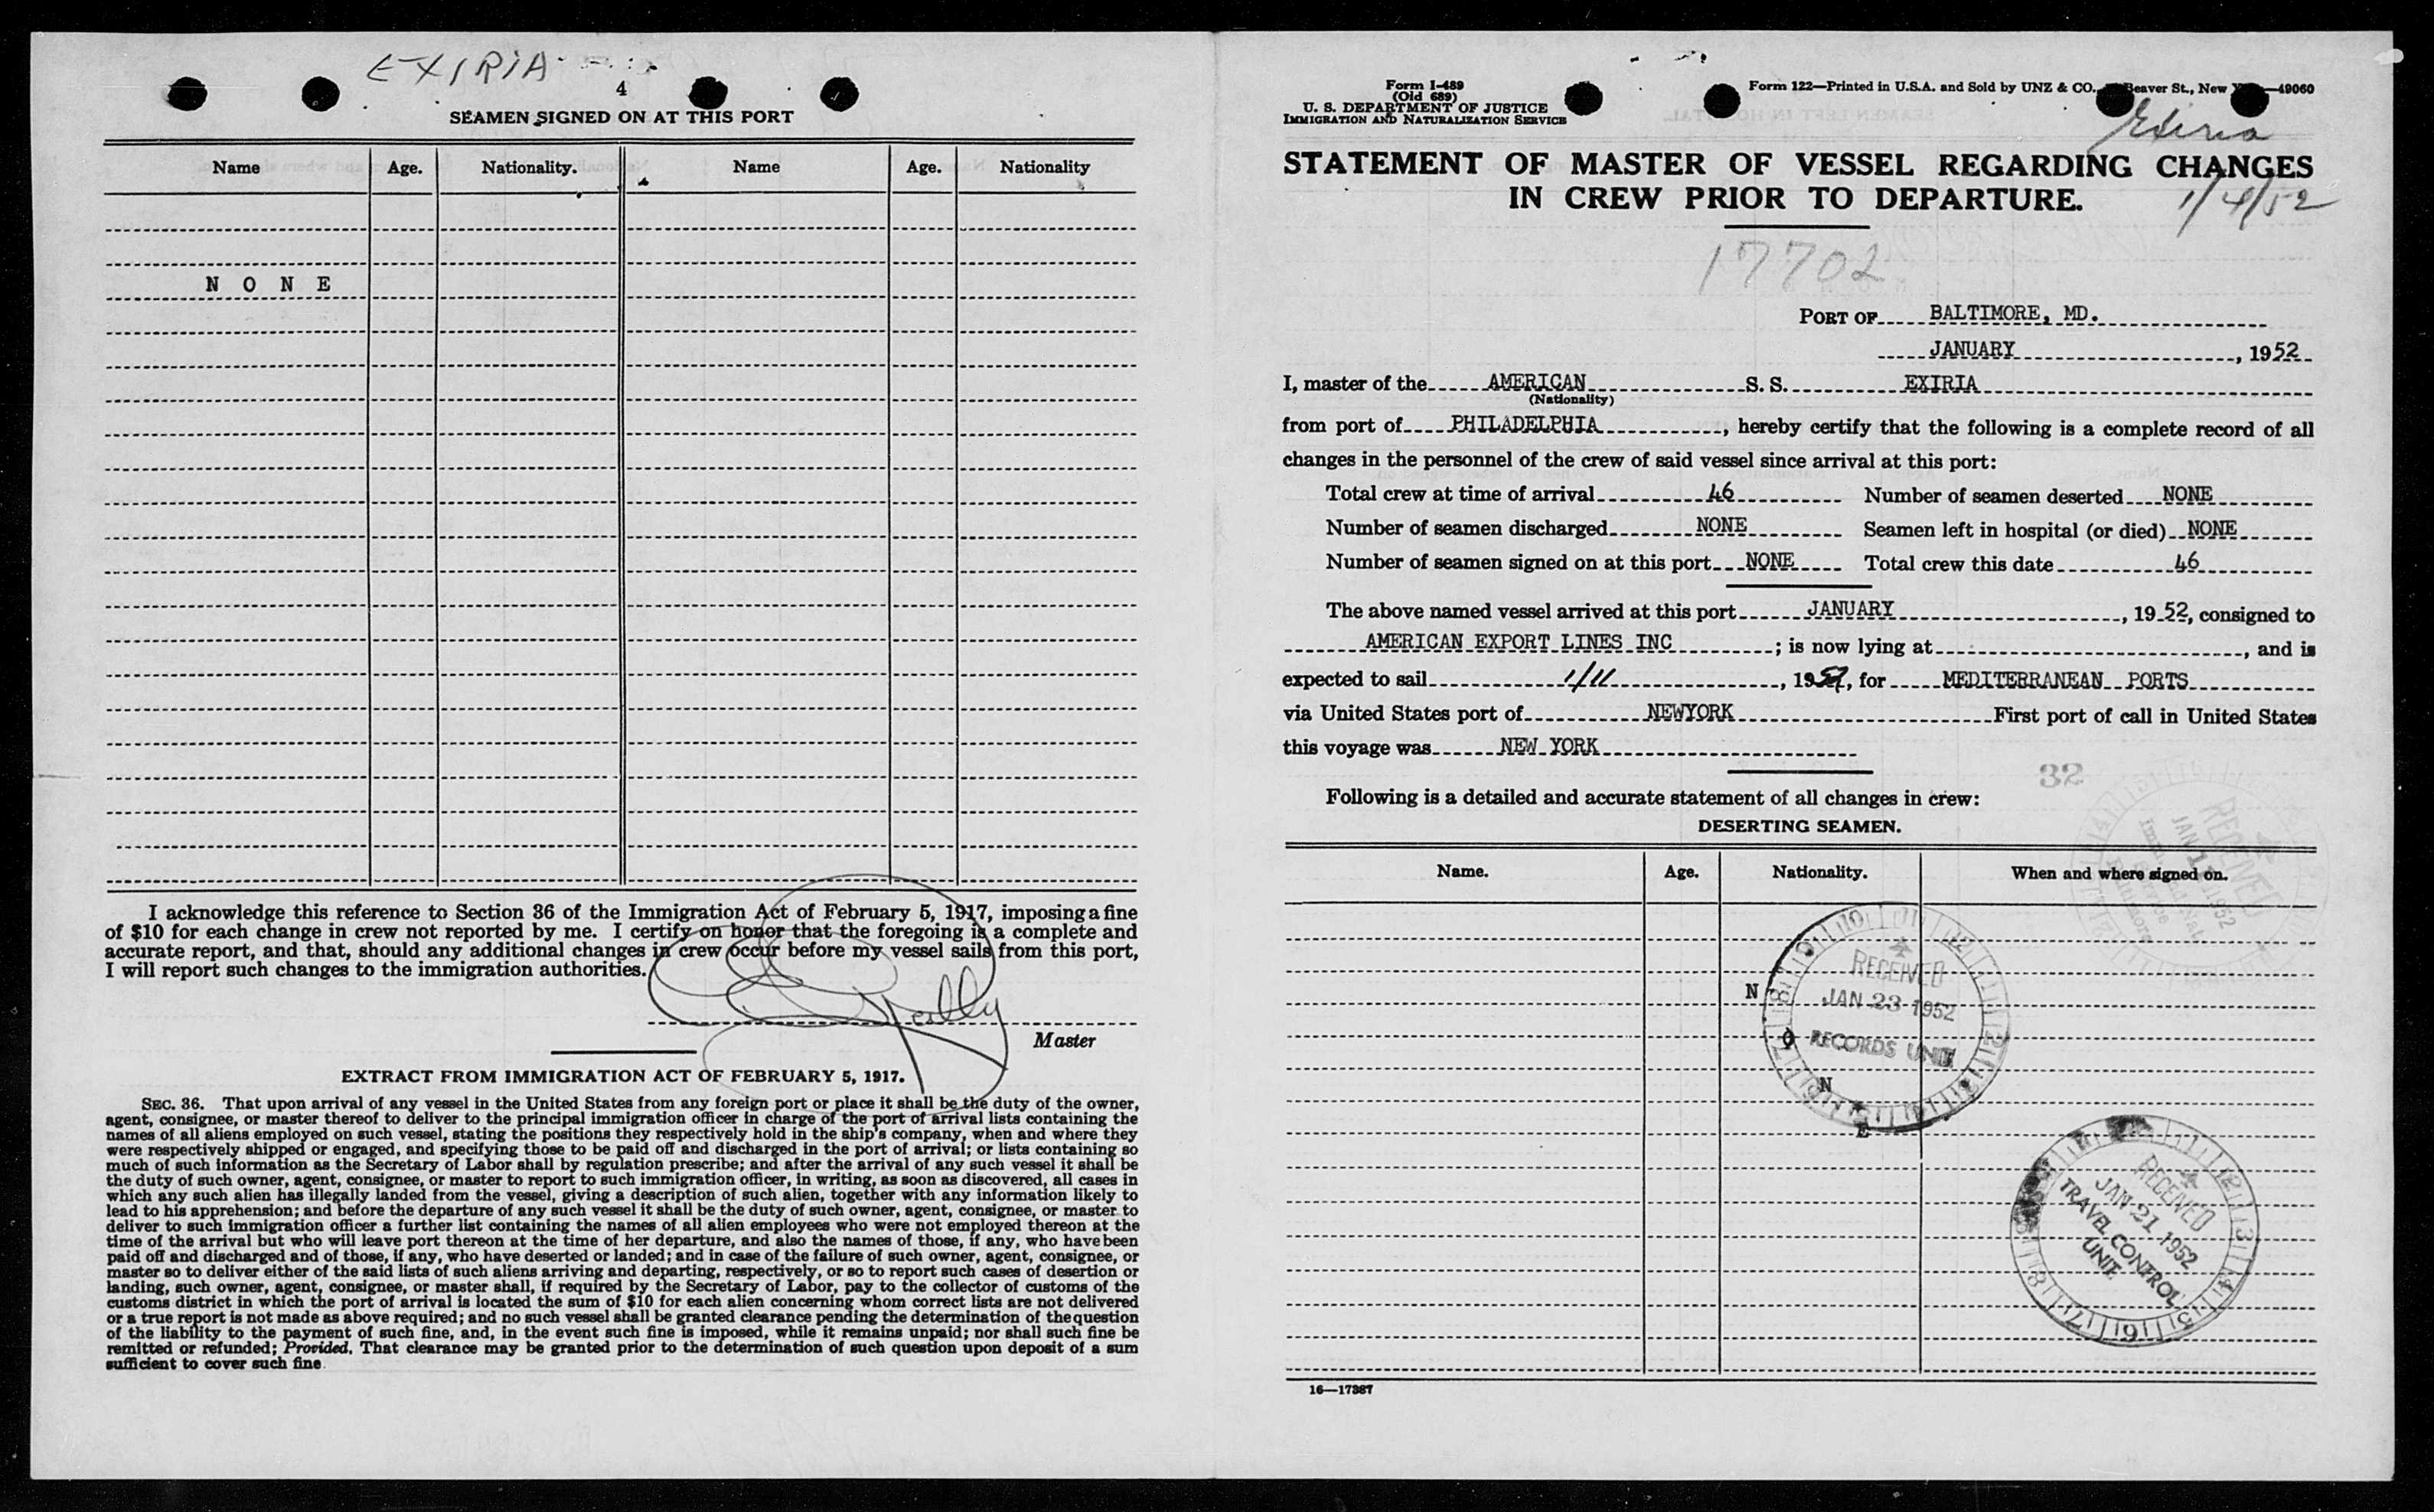 EXIRIA
4
SEAMEN SIGNED ON AT THIS PORT
Name Age. Nationality. Name Age. Nationality
N O N E
I acknowledge this reference to Section 36 of the Immigration Act of February 5, 1917, imposing a fine
of $10 for each change in crew not reported by me. I certify on honor that the foregoing is a complete and
accurate report, and that, should any additional changes in crew occur before my vessel sails from this port,
I will report such changes to the immigration authorities.
Master
EXTRACT FROM IMMIGRATION ACT OF FEBRUARY 5, 1917.
SEC. 36. That upon arrival of any vessel in the United States from any foreign port or place it shall be the duty of the owner,
agent, consignee, or master thereof to deliver to the principal immigration officer in charge of the port of arrival lists containing the
names of all aliens employed on such vessel, stating the positions they respectively hold in the ship's company, when and where they
were respectively shipped or engaged, and specifying those to be paid off and discharged in the port of arrival; or lists containing so
much of such information as the Secretary of Labor shall by regulation prescribe; and after the arrival of any such vessel it shall be
the duty of such owner, agent, consignee, or master to report to such immigration officer, in writing, as soon as discovered, all cases in
which any such alien has illegally landed from the vessel, giving a description of such alien, together with any information likely to
lead to his apprehension; and before the departure of any such vessel it shall be the duty of such owner, agent, consignee, or master to
deliver to such immigration officer a further list containing the names of all alien employees who were not employed thereon at the
time of the arrival but who will leave port thereon at the time of her departure, and also the names of those, if any, who have been
paid off and discharged and of those, if any, who have deserted or landed; and in case of the failure of such owner, agent, consignee, or
master so to deliver either of the said lists of such aliens arriving and departing, respectively, or so to report such cases of desertion or
landing, such owner, agent, consignee, or master shall, if required by the Secretary of Labor, pay to the collector of customs of the
customs district in which the port of arrival is located the sum of $10 for each alien concerning whom correct lists are not delivered
or a true report is not made as above required; and no such vessel shall be granted clearance pending the determination of the question
of the liability to the payment of such fine, and, in the event such fine is imposed, while it remains unpaid; nor shall such fine be
remitted or refunded; Provided, That clearance may be granted prior to the determination of such question upon deposit of a sum
sufficient to cover such fine.
Form I-489
(Old 689)
U. S. DEPARTMENT OF JUSTICE
IMMIGRATION AND NATURALIZATION SERVICE
Form 122—Printed in U.S.A. and Sold by UNZ & CO., Beaver St., New —49060
Exiria
STATEMENT OF MASTER OF VESSEL REGARDING CHANGES
IN CREW PRIOR TO DEPARTURE.
1/4/52
17702
PORT OF BALTIMORE, MD.
JANUARY, 1952
I, master of the AMERICAN S. S. EXIRIA
(Nationality)
from port of PHILADELPHIA, hereby certify that the following is a complete record of all
changes in the personnel of the crew of said vessel since arrival at this port:
Total crew at time of arrival 46 Number of seamen deserted NONE
Number of seamen discharged NONE Seamen left in hospital (or died) NONE
Number of seamen signed on at this port NONE Total crew this date 46
The above named vessel arrived at this port JANUARY, 1952, consigned to
AMERICAN EXPORT LINES INC; is now lying at, and is
expected to sail 1/11, 1952, for MEDITERRANEAN PORTS
via United States port of NEWYORK First port of call in United States
this voyage was NEW YORK
32
Following is a detailed and accurate statement of all changes in crew:
DESERTING SEAMEN.
Name. Age. Nationality. When and where signed on.
RECEIVED
JAN 1952
N
O
N
E
RECEIVED
JAN 23 1952
RECORDS UNIT
RECEIVED
JAN 21 1952
TRAVEL CONTROL
UNIT
16—17387